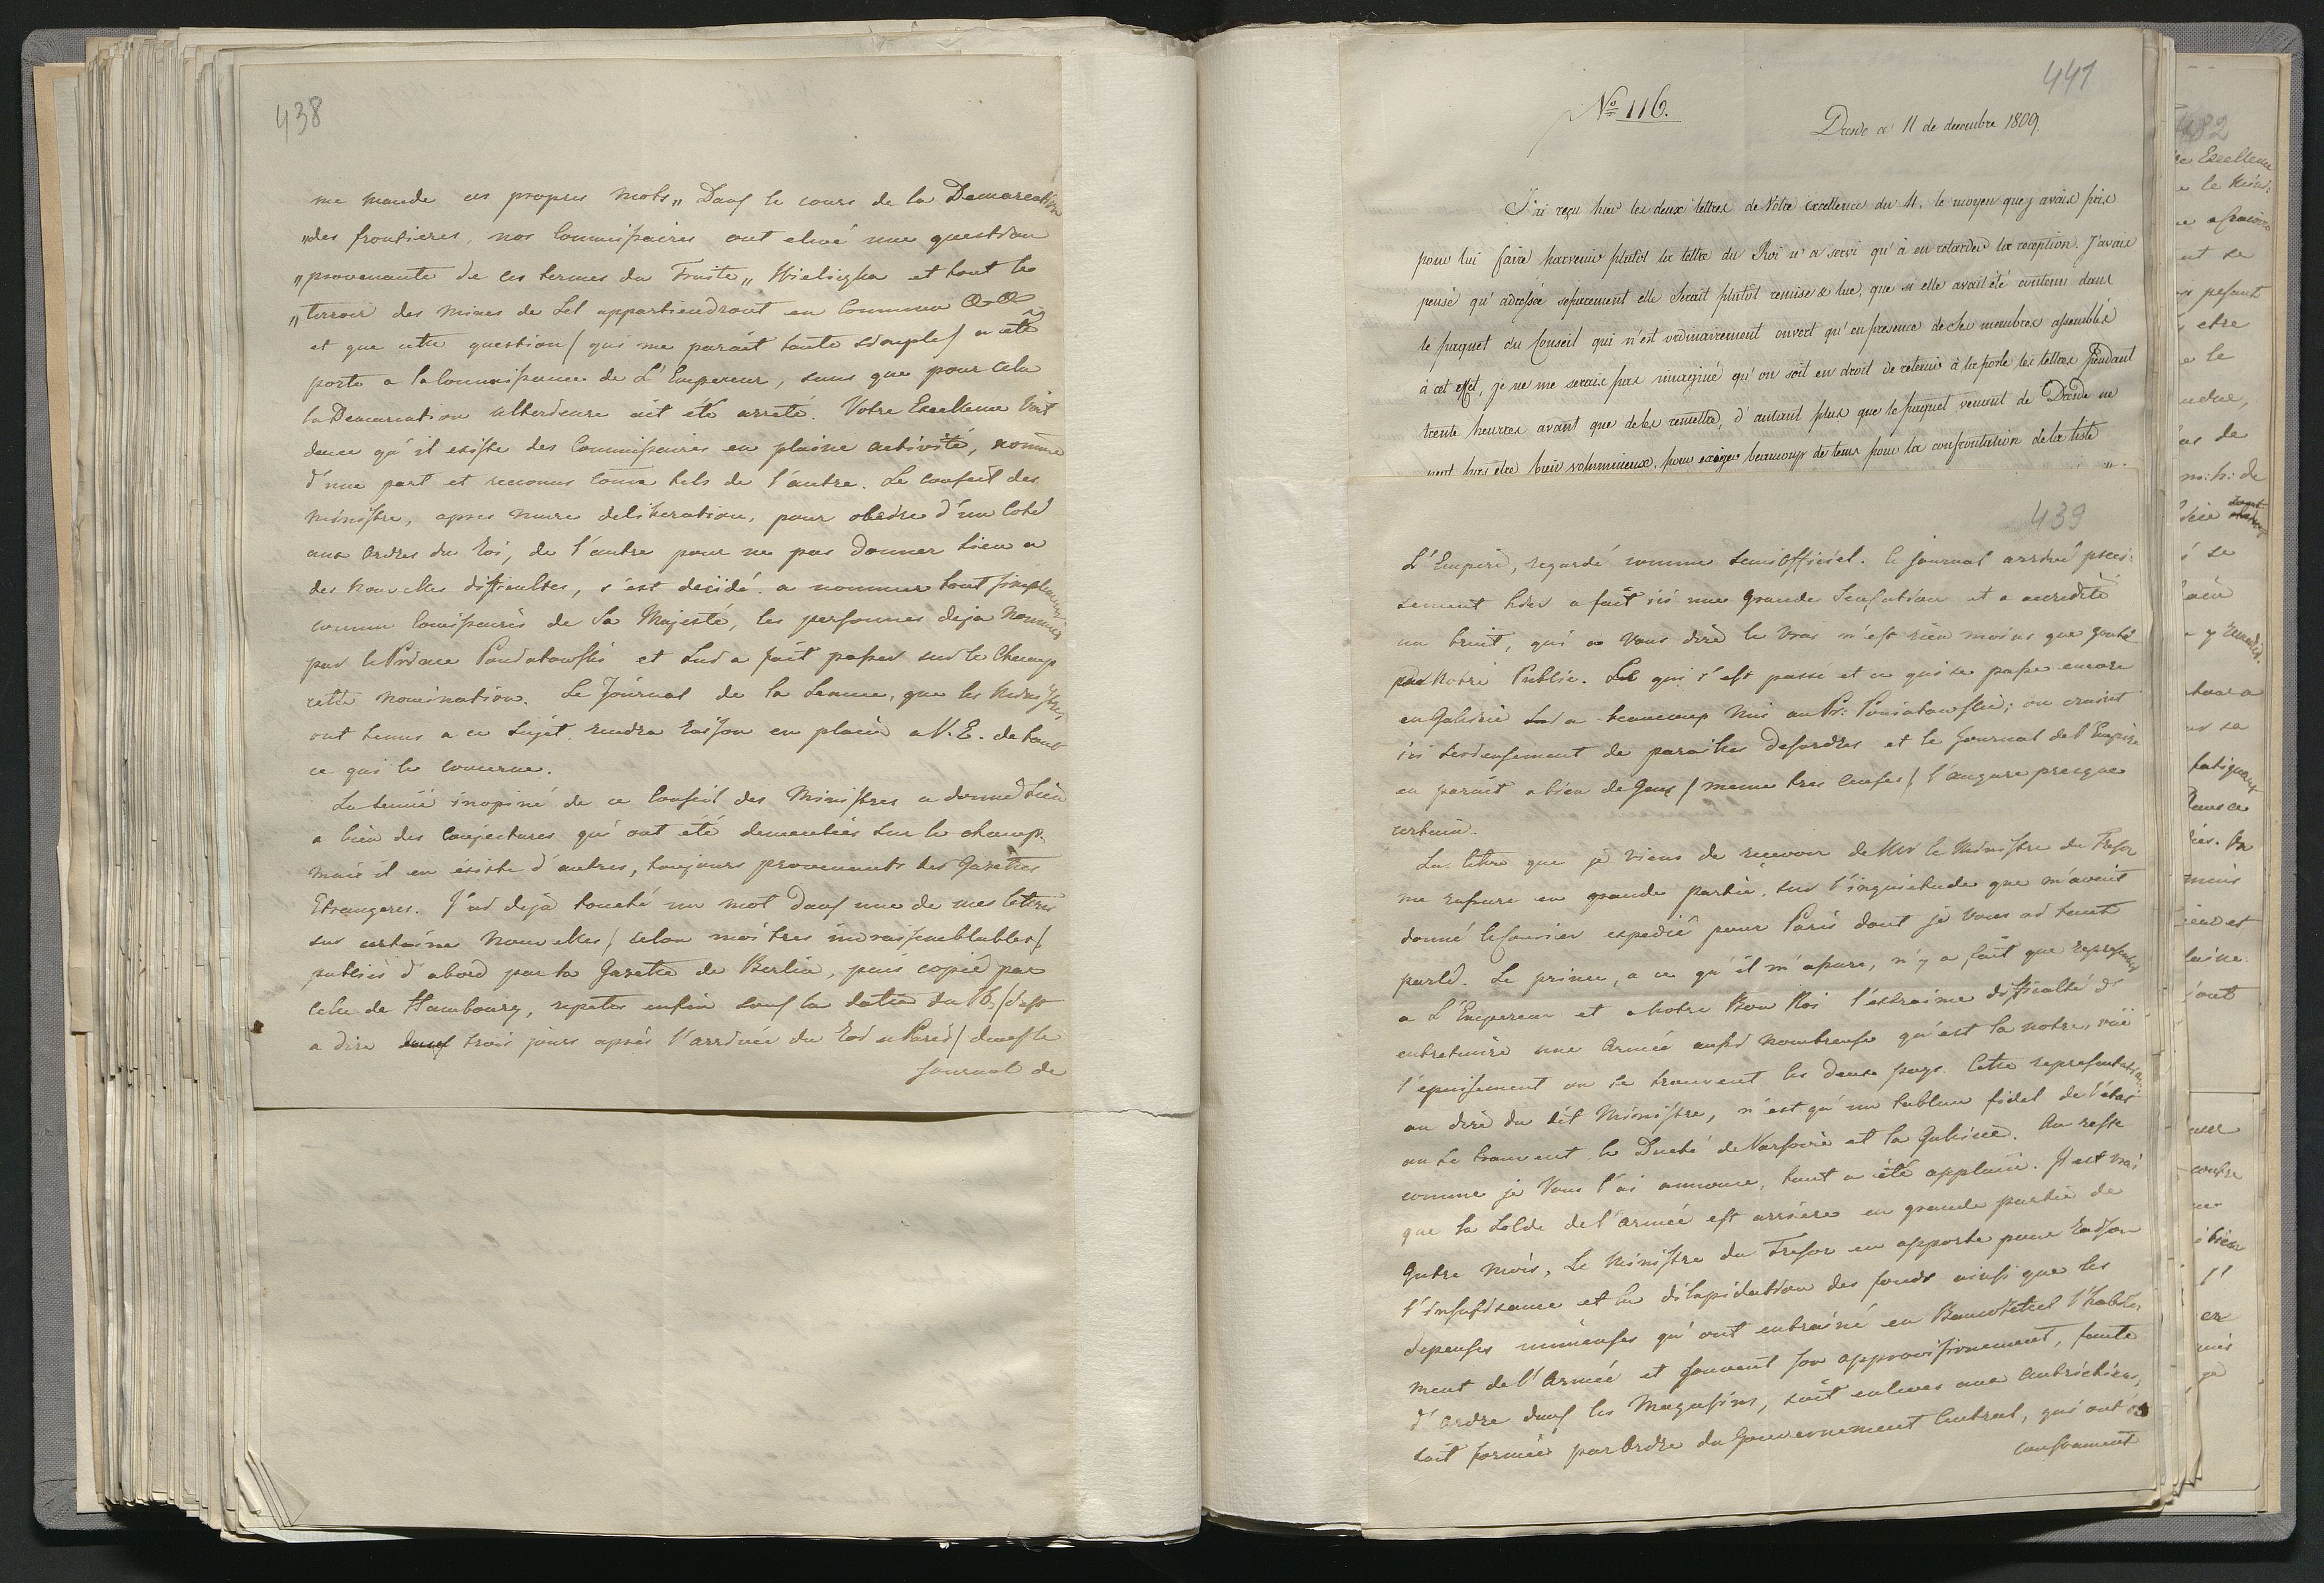 438
me mande ces propres mots „ Dans le cours de la Demarcation
„des frontieres, nos Commissaires ont elevé une question
„provenante de ces termes du Traité „ Wieliczka et tout le
„terroir des mines de Sel appartiendront en Commun
et que cette question / qui me parait toute simple / a été
porté a la Connaissance de L'Empereur, sans que pour cela
la Demarcation ulterieure ait été arreté. Votre Excellence voit
donc qu'il existe des Commissaires en plaine activité, nommé
d'une part et reconnus come tels de l'autre. Le Conseil des
Ministre, apres mure deliberation, pour obedire d'un Coté
aux Ordres du Roi, de l'autre pour ne pas donner lieu a
des nouvelles difficultes, s'est decidé a nommer tout simplement
comme Comissaires de Sa Majesté, les personnes deja nommés
par le Prince Poniatowski et Lui a fait passer sur le Champ
cette nomination. Le Journal de la Seance, que les Ministres
ont tenus a ce Sujet rendra raison en plain a V. E. de tout
ce qui le concerne.
La tenue inopiné de ce Conseil des Ministres a donné lieu
a bien des Conjectures qui ont été dementies sur le champ,
mais il en existe d'autres, toujours provenants des Gazettes
Etrangeres. J'ai deja touché un mot dans une de mes lettres
sur certaine Nouvelles / selon moi tres invraisemblables /
publiés d'abord par la Gazette de Berlin, puis copié par
celle de Hambourg, repetés enfin sous la datte du 16, / c'est
a dire trois jours aprés l'arrivée du Roi a Paris / dans le
Journal de
441
No 116.
Dresde ce 11 de decembre 1809.
J'ai reçu hier les deux lettres de Votre Excellence du 4. le moyen que j'avais pris
pour lui faire parvenir plutôt la lettre du Roi n'a servi qu'à en retarder la reception. J'avais
pensé qu'adressée séparement elle serait plutôt remise & lue, que si elle avait été contenu dans
le paquet du Conseil qui n'est ordinairement ouvert qu'en presence de ses membres assemblés
à cet effet, je ne me serais pas imaginé qu'on soit en droit de retenir à la poste les lettres pendant
trente heures avant que de les remettre, d'autant plus que le paquet venant de Dresde ne
peut pas être bien volumineux, pour exiger beaucoup de tems pour la confrontation de la liste
439
L'Empire, regardé comme Semiofficiel. Ce journal arrivé preci-
sement hier a fait ici une grande Sensation et a accredité
un bruit, qui a vous dire le vrai n'est rien moins que gouté
par Notre Public. Ce qui s'est passé et ce qui se passe encore
en Galicie a beaucoup Nui au Pr: Poniatowski; on craint
ici serieusement de pareilles desordres et le Journal de l'Empire
en parait a bien de Gens / meme tres censés / l'augure presque
certain.
La lettre que je viens de recevoir de Mr le Ministre du Tresor
me rassure en grande partie, sur l'inquietude que m'avait
donné le Courier expedié pour Paris dont je vous ai tant
parlé. Le prince, a ce qu'il m'assure, n'y a fait que representer
a L'Empereur et a Notre Bon Roi l'extraime difficulté d'
entretenire une Armée aussi nombreuse qu'est la notre, vûe
l'epuisement ou se trouvent les deux pays. Cette representation
au dire du dit Ministre, n'est qu'un tableau fidel de l'etat
ou se trouvent le Duché de Varsovie et la Galicie. Au reste
comme je Vous l'ai annoncé, tout a été applani. Il est vrai
que la Solde de l'armée est arriéré en grande partie de
Quatre Mois, Le Ministre du Tresor en apporte pour raison
l'insufisance et la dilapidation des fonds ainsi que les
depenses immenses qu'ont entrainé en l'habille-
ment de l'Armée et souvent son approvisionement, faute
d'ordre dans les Magasins, soit enlevés aux Autrichiens,
soit formée par Ordre du Gouvernement Central, qui ont
consomment
432